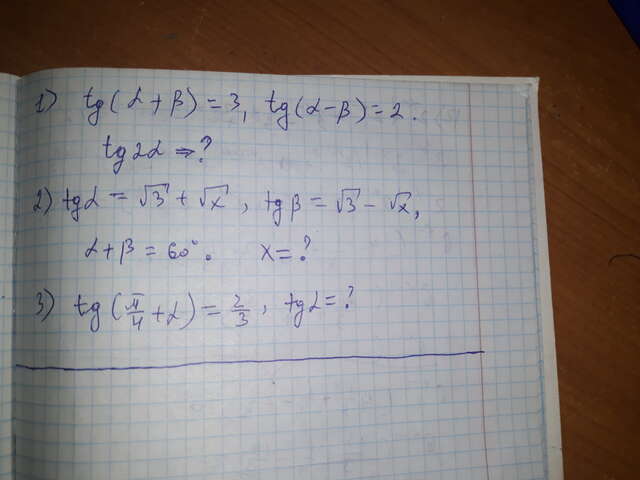 1) tg(α+β)=3, tg(α-β)=2.
tg2α=?
2) tgα=√3+√x, tgβ=√3-√x,
α+β=60°. x=?
3) tg(π/4+α)=2/3, tgα=?